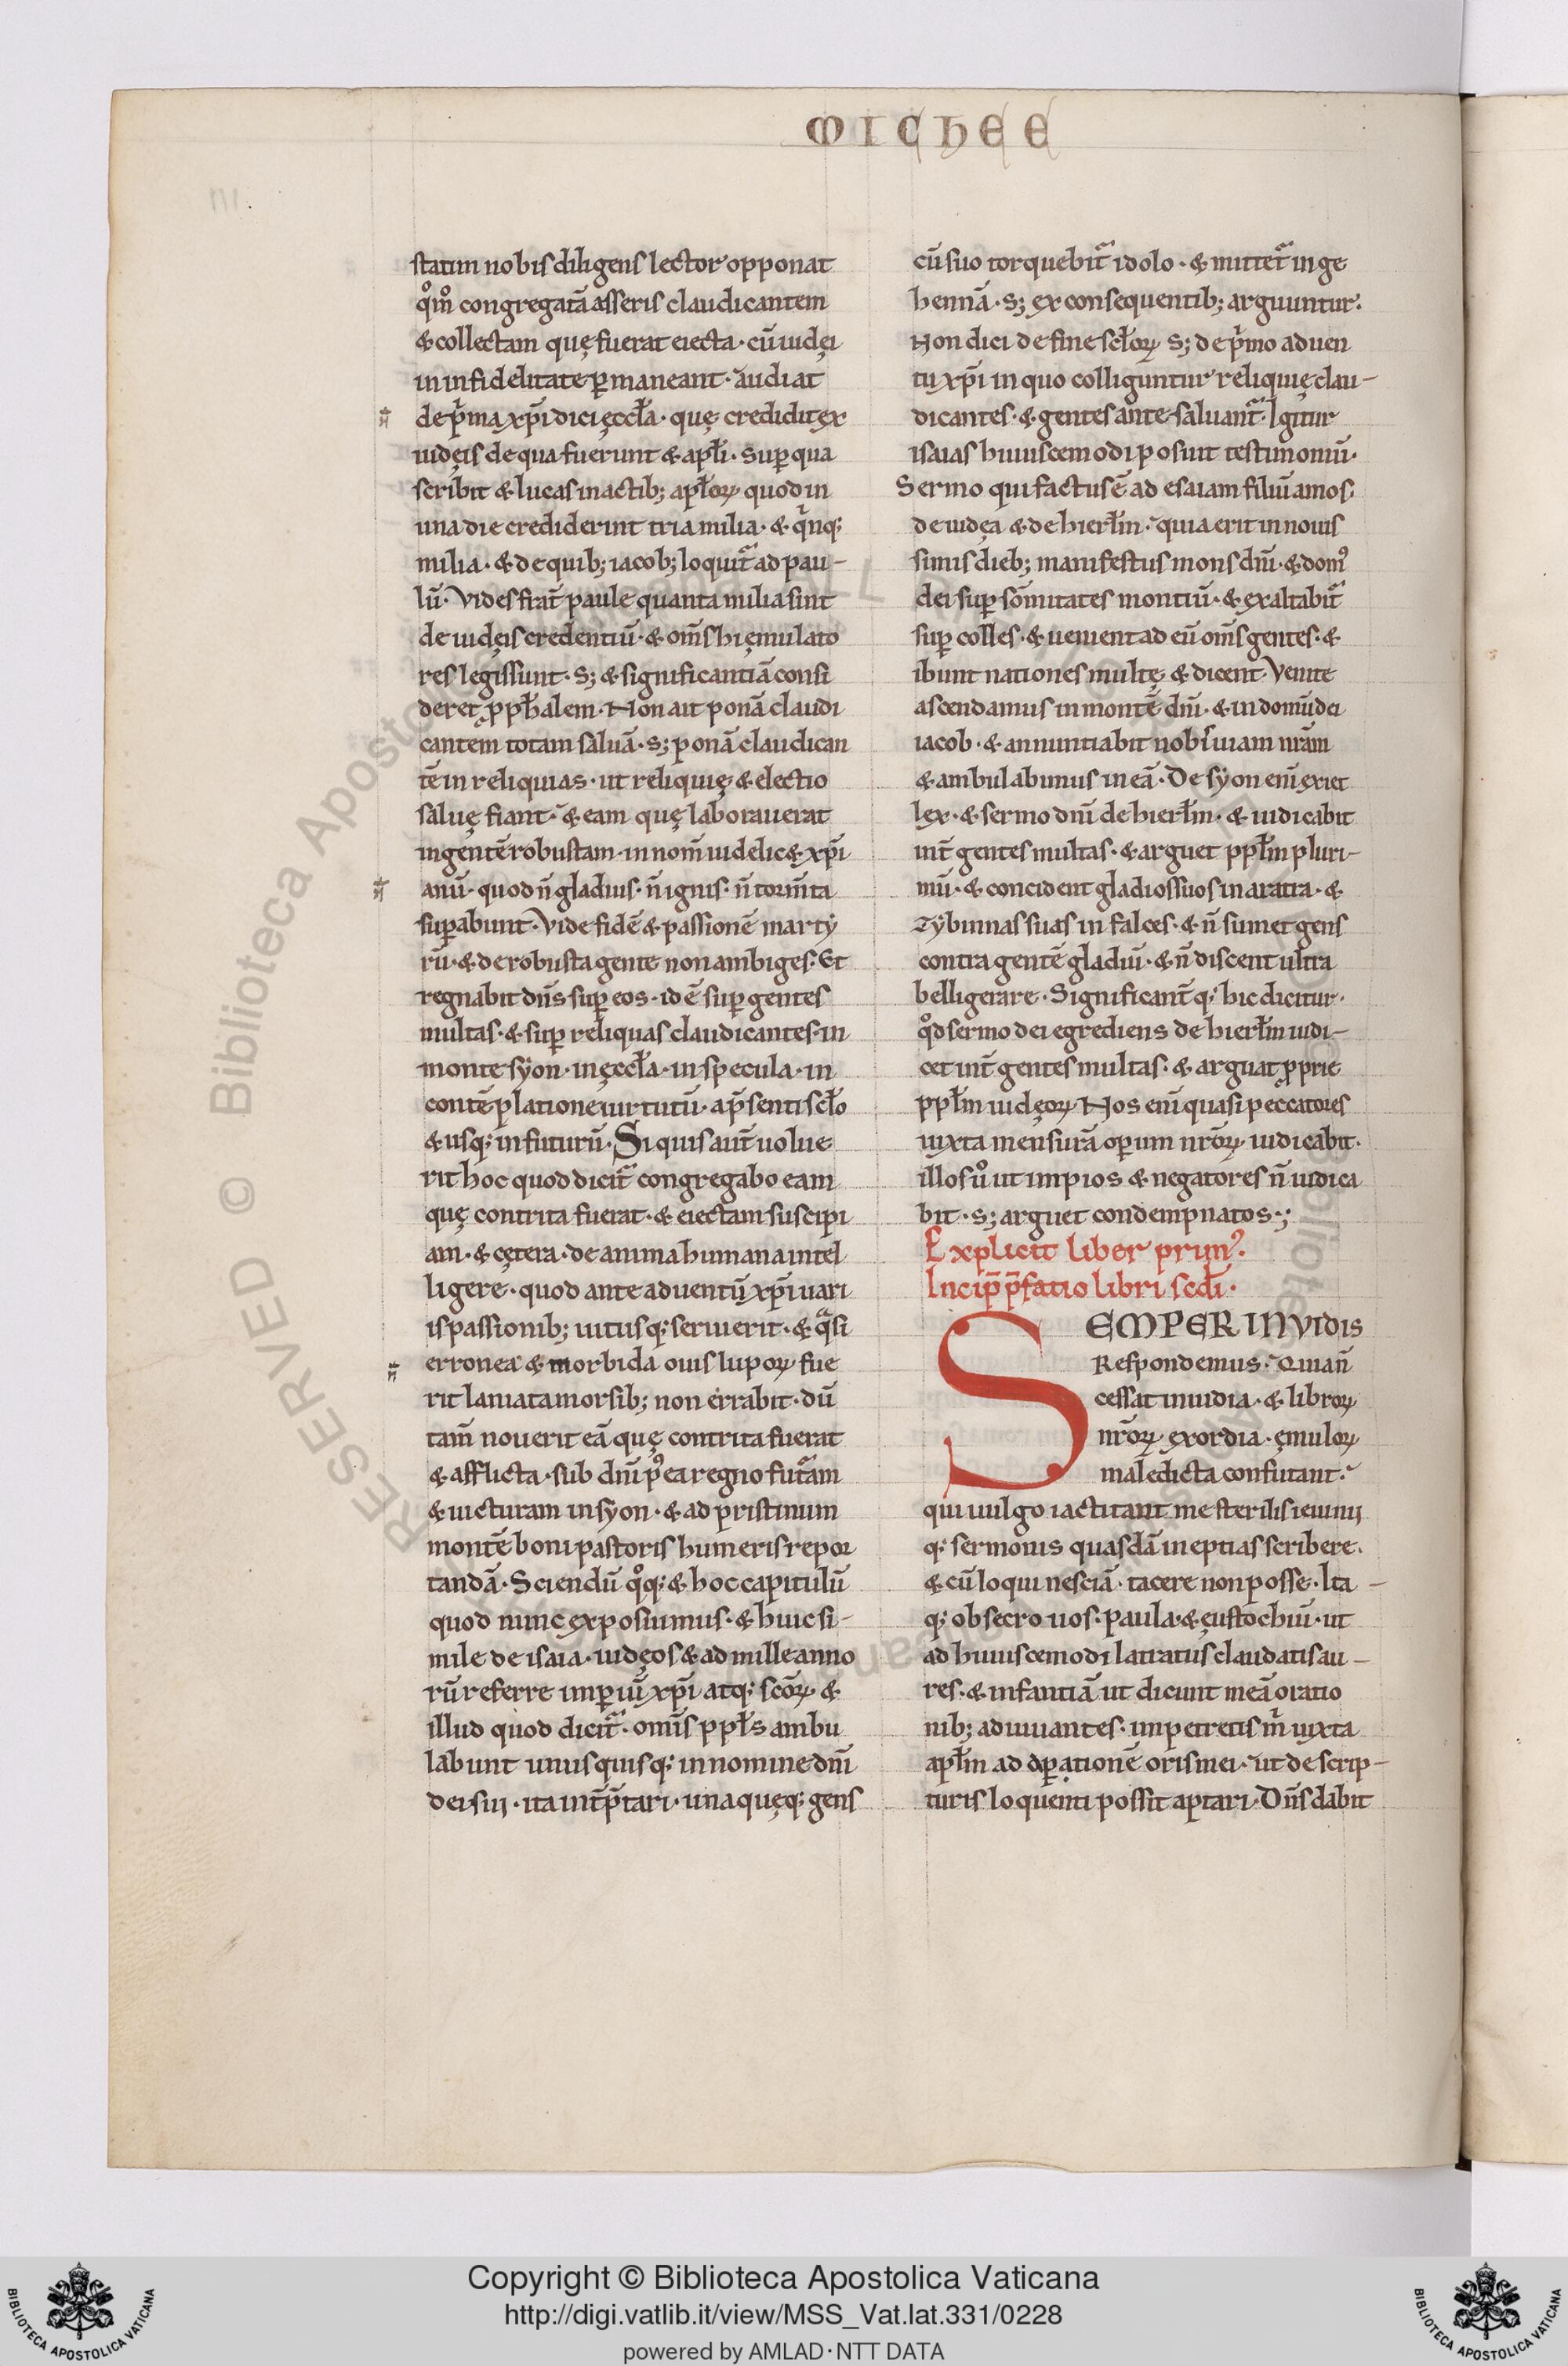 MICHEE
statim nobis diligens lector opponat
qͦm̄ congregatā asseris claudicantem
& collectam quę fuerat eiecta · cū iudęi
in infidelitate ꝑmaneant · audiat
de pͥma xp̄i dici ęccła · quę credidit ex
iudęis de qua fuerunt & apłi · Suꝑ qua
scribit & lucas in actib; apłoꝝ quod in
una die crediderint tria milia · & qͥnq;
milia · & de quib; iacob; loquit᷑ ad pau-
lū · Vides frat̄ paule quanta milia sint
de iudęis credentiū · & om̄s hi ęmulato
res legis sunt · S; & significantiā consi
deret ꝓphalem · Non ait ponā claudi
cantem totam saluā · s; ponā claudican
tē in reliquias · ut reliquię & electio
saluę fiant · & eam quę laborauerat
in gentē robustam · in nom̄ uidelic& xp̄i
anū · quod n̄ gladius · n̄ ignis · n̄ torm̄ta
suꝑabunt · Vide fidē & passionē marty
rū · & de robusta gente non ambiges · Et
regnabit dn̄s suꝑ eos · id ē suꝑ gentes
multas · & suꝑ reliquas claudicantes · in
monte syon · in ęccła · in specula · in
contēplatione uirtutū · a p̄senti scło
& usq; in futurū · Si quis aut̄ uolue
rit hoc quod dicit᷑ congregabo eam
quę contrita fuerat · & eiectam suscipi
am · & cętera · de anima humana intel
ligere · quod ante aduentū xp̄i uari
is passionib; uitiisq; seruierit · & qᷓsi
erronea & morbida ouis lupoꝝ fue
rit laniata morsib; non errabit · dū
tam̄ nouerit eā quę contrita fuerat
& afflicta · sub dn̄i pꝰea regno futᷓam
& uicturam in syon · & ad pristinum
montē boni pastoris humeris repor
tandā · Sciendū qͦq; & hoc capitulū
quod nunc exposuimus · & huic si-
mile de isaia · iudęos & ad mille anno
rū referre imꝑiū xp̄i atq; sc̄oꝝ · &
illud quod dicit᷑ · omīs ppłs ambu
labunt unusquisq; in nomine dn̄i
dei sui · ita int̄p̄tari · unaquęq; gens
cū suo torquebit᷑ idolo · & mittet᷑ in ge
hennā · S; ex consequentib; arguuntur ·
Non dici de fine scłoꝝ s; de pͥmo aduen
tu xp̄i in quo colliguntur reliquię clau-
dicantes · & gentes ante saluant᷑ · Igitur
isaias huiuscemodi posuit testimoniū ·
Sermo qui factus ē ad esaiam filiū amos
de iudęa & de hierłm · quia erit in nouis
simis dieb; manifestus mons dn̄i · & domꝰ
dei suꝑ sōmitates montiū · & exaltabit᷑
suꝑ colles · & uenient ad eū om̄s gentes · &
ibunt nationes multę & dicent · Venite
ascendamus in montē dn̄i · & in domū dei
iacob · & annuntiabit nobis uiam nr̄am
& ambulabimus in eā · De syon eni̅ exiet
lex · & sermo dn̄i de hierłm · & iudicabit
int̄ gentes multas · & arguet ppłm pluri-
mū · & concident gladios suos in aratra · &
zybinnas suas in falces · & n̄ sumet gens
contra gentē gladiū · & n̄ discent ultra
belligerare · Significant̄q; hic dicitur ·
qͦd sermo dei egrediens de hierłm iudi-
cet int̄ gentes multas · & arguat ꝓprie
ppłm iudęoꝝ · Nos eni̅ quasi peccatores
iuxta mensurā oꝑum nr̄oꝝ iudicabit ·
illos uͦ ut impios & negatores n̄ iudica
bit · s; arguet condempnatos ·;
Explicit liber primꝰ ·
Incip̄ p̄fatio libri sc̄di ·
SEMPER INVIDIS
Respondemus · Quia n̄
cessat inuidia · & libroꝝ
nr̄oꝝ exordia · ęmuloꝝ
maledicta confutant ·
qui uulgo iactitant me sterilis ieiunij
q; sermonis quasdā ineptias scribere ·
& cū loqui nesciā · tacere non posse · Ita-
q; obsecro uos · paula & eustochiū · ut
ad huiuscemodi latratus claudatis au-
res · & infantiā ut dicunt meā oratio
nib; adiuuantes · impetretis m̄ iuxta
apłm ad aꝑationē oris mei · ut de scrip-
turis loquenti possit aptari · Dn̄s dabit
© Biblioteca Apostolica Vaticana ALL RIGHTS RESERVED
Copyright © Biblioteca Apostolica Vaticana
http://digi.vatlib.it/view/MSS_Vat.lat.331/0228
powered by AMLAD·NTT DATA
BIBLIOTECA APOSTOLICA VATICANA
BIBLIOTECA APOSTOLICA VATICANA